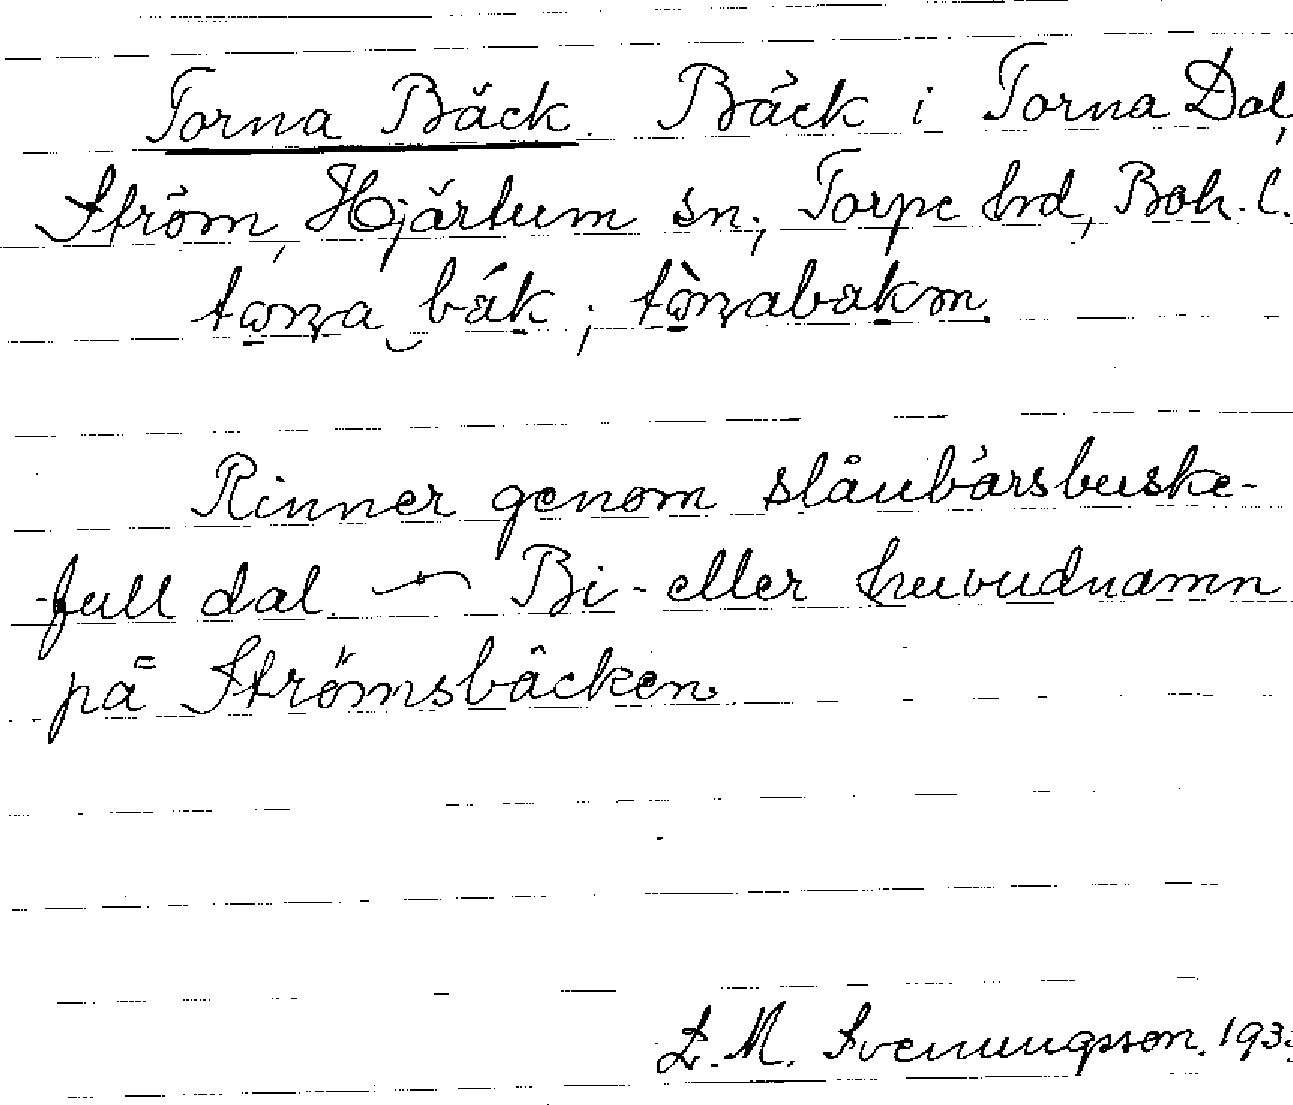 Torna Bäck. Bäck i Torna Dal,
Ström, Hjärtum sn; Torpe hrd, Boh. l.
Rinner genom slånbärsbuske-
-full dal. — Bi- eller huvudnamn
på Strömsbäcken.
L. M. Svenungsson. 193